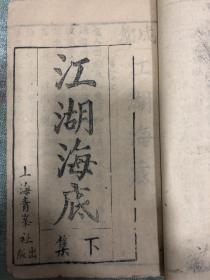 江湖海底
下集
上海青峯社出版